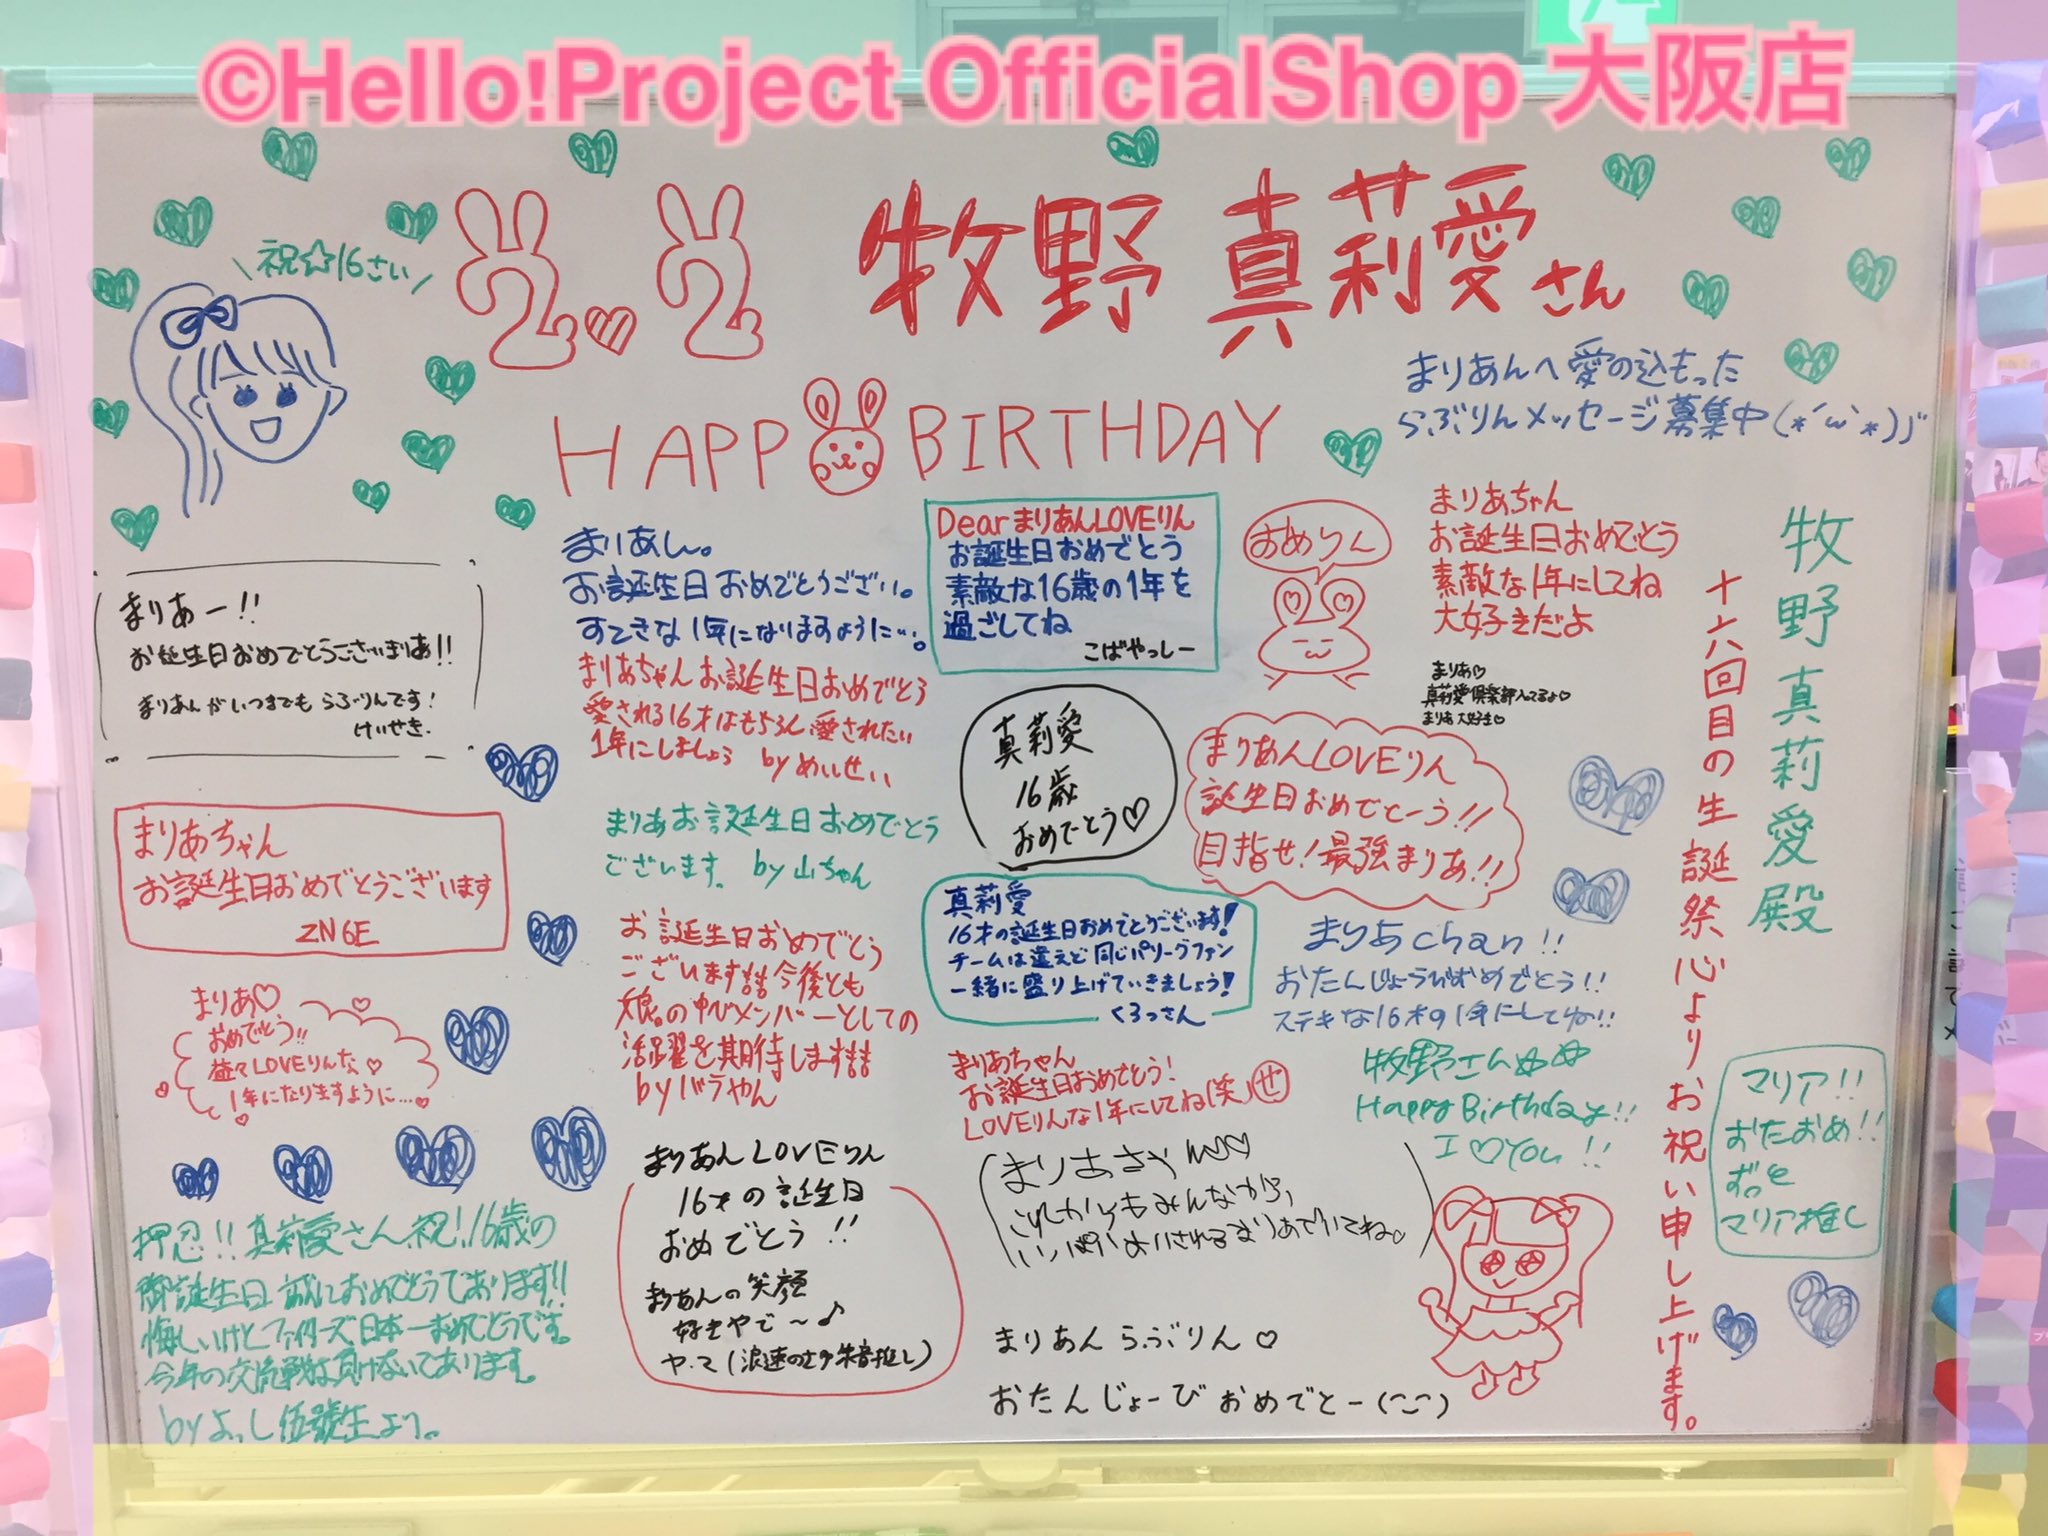 ©Hello!Project OfficialShop 大阪店
祝☆16さい
2♥2
牧野 真莉愛さん
HAPPY BIRTHDAY
まりあんへ愛の込もった
らぶりんメッセージ募集中(*´ω`*)
まりあー!!
お誕生日おめでとうございまりあ!!
まりあんがいつまでもらぶりんです!
けいせき.
まりあちゃん
お誕生日おめでとうございます
ZN6E
まりあ♡
おめでとう!!
益々LOVEりんな♡
1年になりますように…♡
押忍!!真莉愛さん、祝!16歳の
御誕生日誠におめでとうであります!!
悔しいけどファイターズ日本一おめでとうです。
今年の交流戦は負けないであります。
まりあん。
お誕生日おめでとうござい。
すてきな1年になりますように…。
まりあちゃんお誕生日おめでとう
愛される16才はもちろん愛されたい
1年にしましょう byめいせい
まりあお誕生日おめでとう
ございます。 by山ちゃん
お誕生日おめでとう
ございます!!今後とも
娘。の中心メンバーとしての
活躍を期待します!!
byバラやん
まりあんLOVEりん
16才の誕生日
おめでとう!!
まりあんの笑顔
好きやで～♪
Dearまりあん LOVEりん
お誕生日おめでとう
素敵な16歳の1年を
過ごしてね
こばやっしー
おめりん
真莉愛
16歳
おめでとう♡
真莉愛
16才の誕生日おめでとうございます!
チームは違えど同じパリーグファン
一緒に盛り上げていきましょう!
くろっさん
まりあちゃん
お誕生日おめでとう!
LOVEりんな1年にしてね(笑)せ
まりあんらぶりん♡
おたんじょーびおめでとー
まりあちゃん
お誕生日おめでとう
素敵な1年にしてね
大好きだよ
まりあ♡
真莉愛倶楽部入ってるよ♡
まりあ大好き♡
まりあんLOVEりん
誕生日おめでとーう!!
目指せ!最強まりあ!!
まりあchan!!
おたんじょうびおめでとう!!
ステキな16才の1年にしてね!!
牧野さん
Happy Birthday!!
I♡You!!
牧野真莉愛殿
十六回目の生誕祭心よりお祝い申し上げます。
マリア!!
おたおめ!!
ずっと
マリア推し